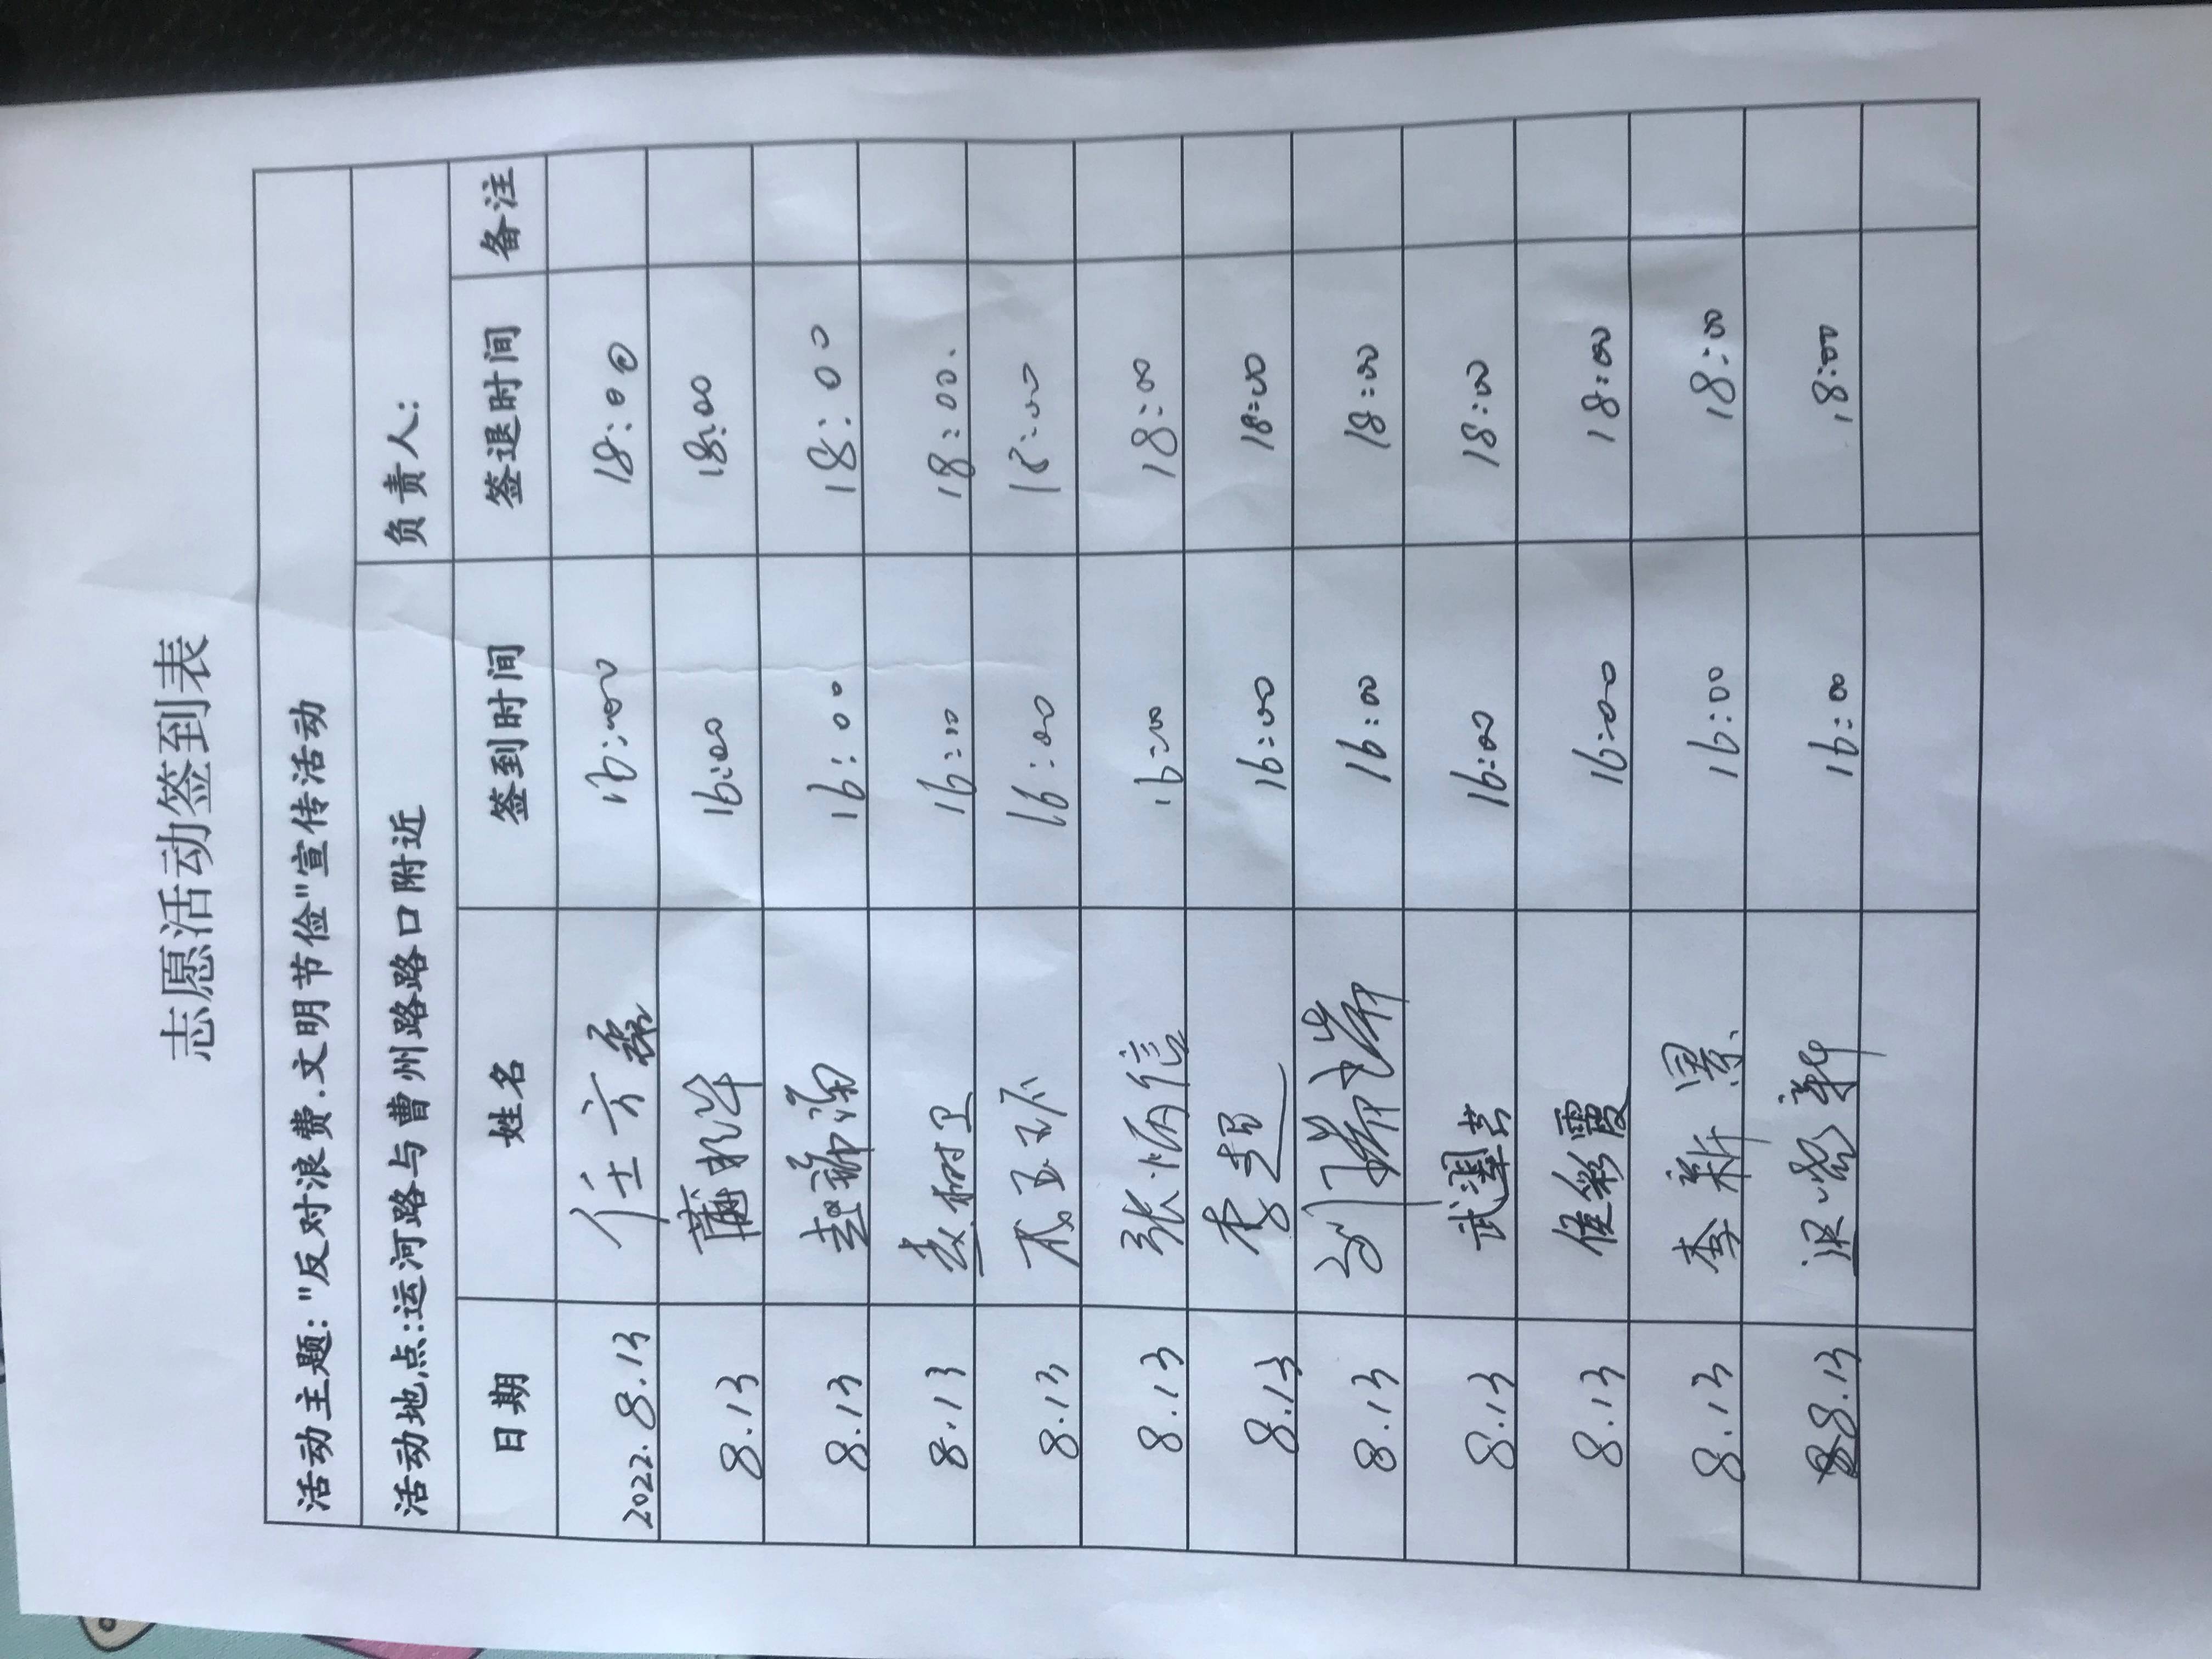 志愿活动签到表
活动主题："反对浪费.文明节俭"宣传活动
活动地点:运河路与曹州路路口附近 负责人:
日期 姓名 签到时间 签退时间 备注
2022.8.13 任方 16:00 18:00
8.13 16:00 18:00
8.13 16:00 18:00
8.13 16:00 18:00.
8.13 16:00 18:00
8.13 张炳信 16:00 18:00
8.13 李超 16:00 18:00
8.13 16:00 18:00
8.13 武 16:00 18:00
8.13 崔彩霞 16:00 18:00
8.13 李新景 16:00 18:00
8.13 16:00 18:00